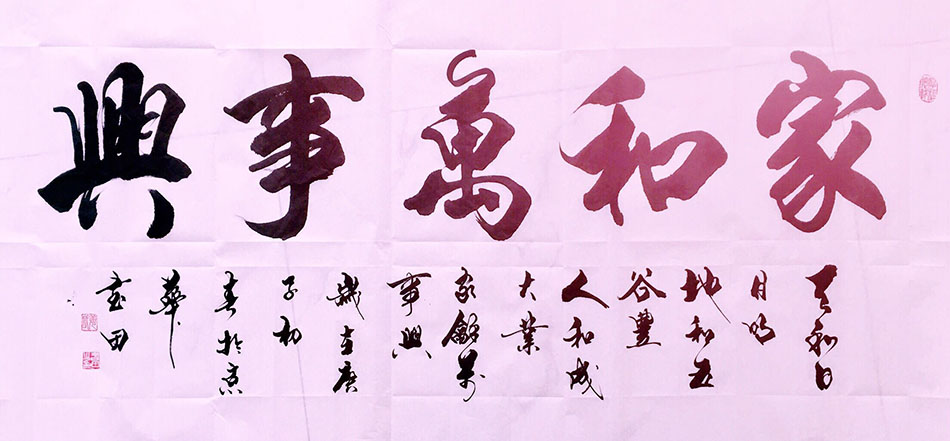 家和萬事興
天和日
月明
地和五
谷豐
人和成
大業
家龢萬
事興
歲在庚
子初
春於京
華
田